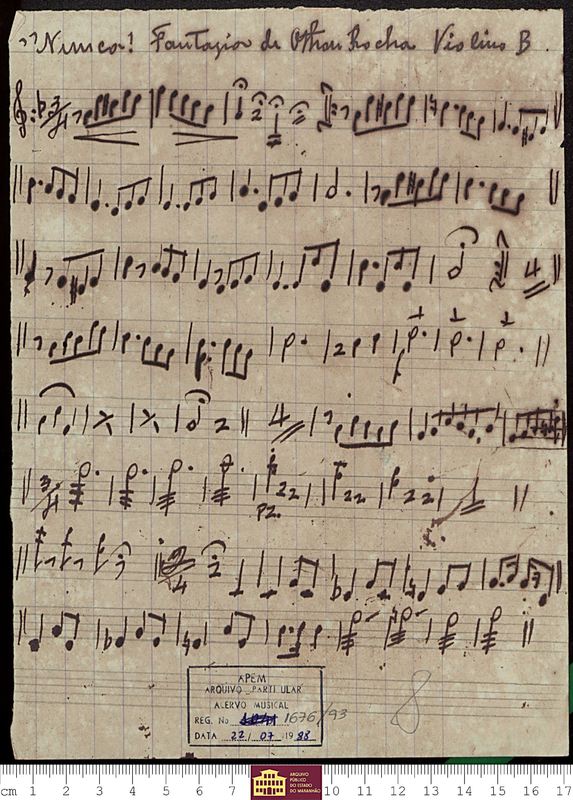 "Nunca! Fantazia de Othon Rocha Violino B.
3/4
2
4
2
2
4
3/4
22 22 22
pz.
2/4 2
APEM
ARQUIVO PARTICULAR
ACERVO MUSICAL
REG. No 1676/93
DATA 22/07/1988
8
cm 1 2 3 4 5 6 7 10 11 12 13 14 15 16 17
ARQUIVO
PÚBLICO
DO ESTADO
DO MARANHÃO